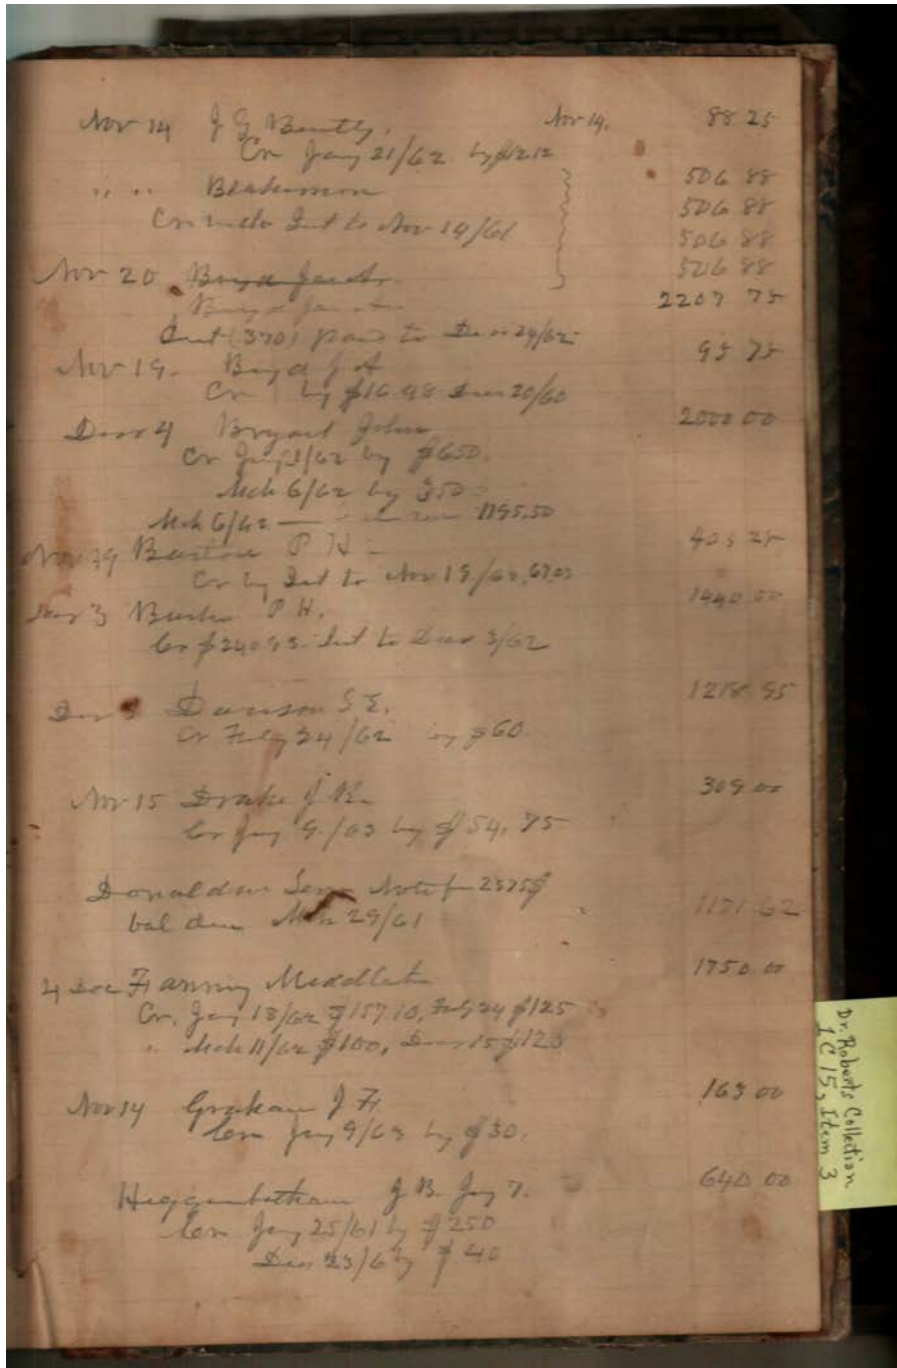 Nov 14 J G Bently. Nov 14. 88 25
Cr Jany 21/62 by $12.12
" " Blakemon 506 88
506 88
Cr Int to Nov 14/61
506 88
Nov 20 Boyd Jas A. 506 88
Boyd Jas A 2207 75
Int (370) paid to Decr 24/62
Nov 19. Boyd J A 95 75
Cr by $16.98 Decr 20/60
Decr 4 Bryant John 2000 00
Cr Jany /62 by $650.
Mch 6/62 by 350
Mch 6/62 — 1195.50
Nov 19 P H 403 25
Cr by Int to Nov 19/62,
3 Burton P H. 1440 00
Cr Int to Decr 3/62
Davison S E. 1218.95
Cr Feby 24/62 by $60.
Nov 15 Drake J 309 00
Cr Jany 9./63 by $54.75
Donaldson Note for 2575$
bal due Mch 29/61 1171 62
4 Dec Fanning Middleton 1750 00
Cr. Jany 18/62 $157.10, Feby 24 $125
" Mch 11/62 $100, Decr 15 $120
Nov 14 Graham J F 163 00
Cr Jany 9/63 by $30.
Higginbotham J B. Jany 7. 640 00
Cr Jany 25/61 by $250
Decr 23/62 by $40
Dr. Roberts Collection
1C15, Item 3